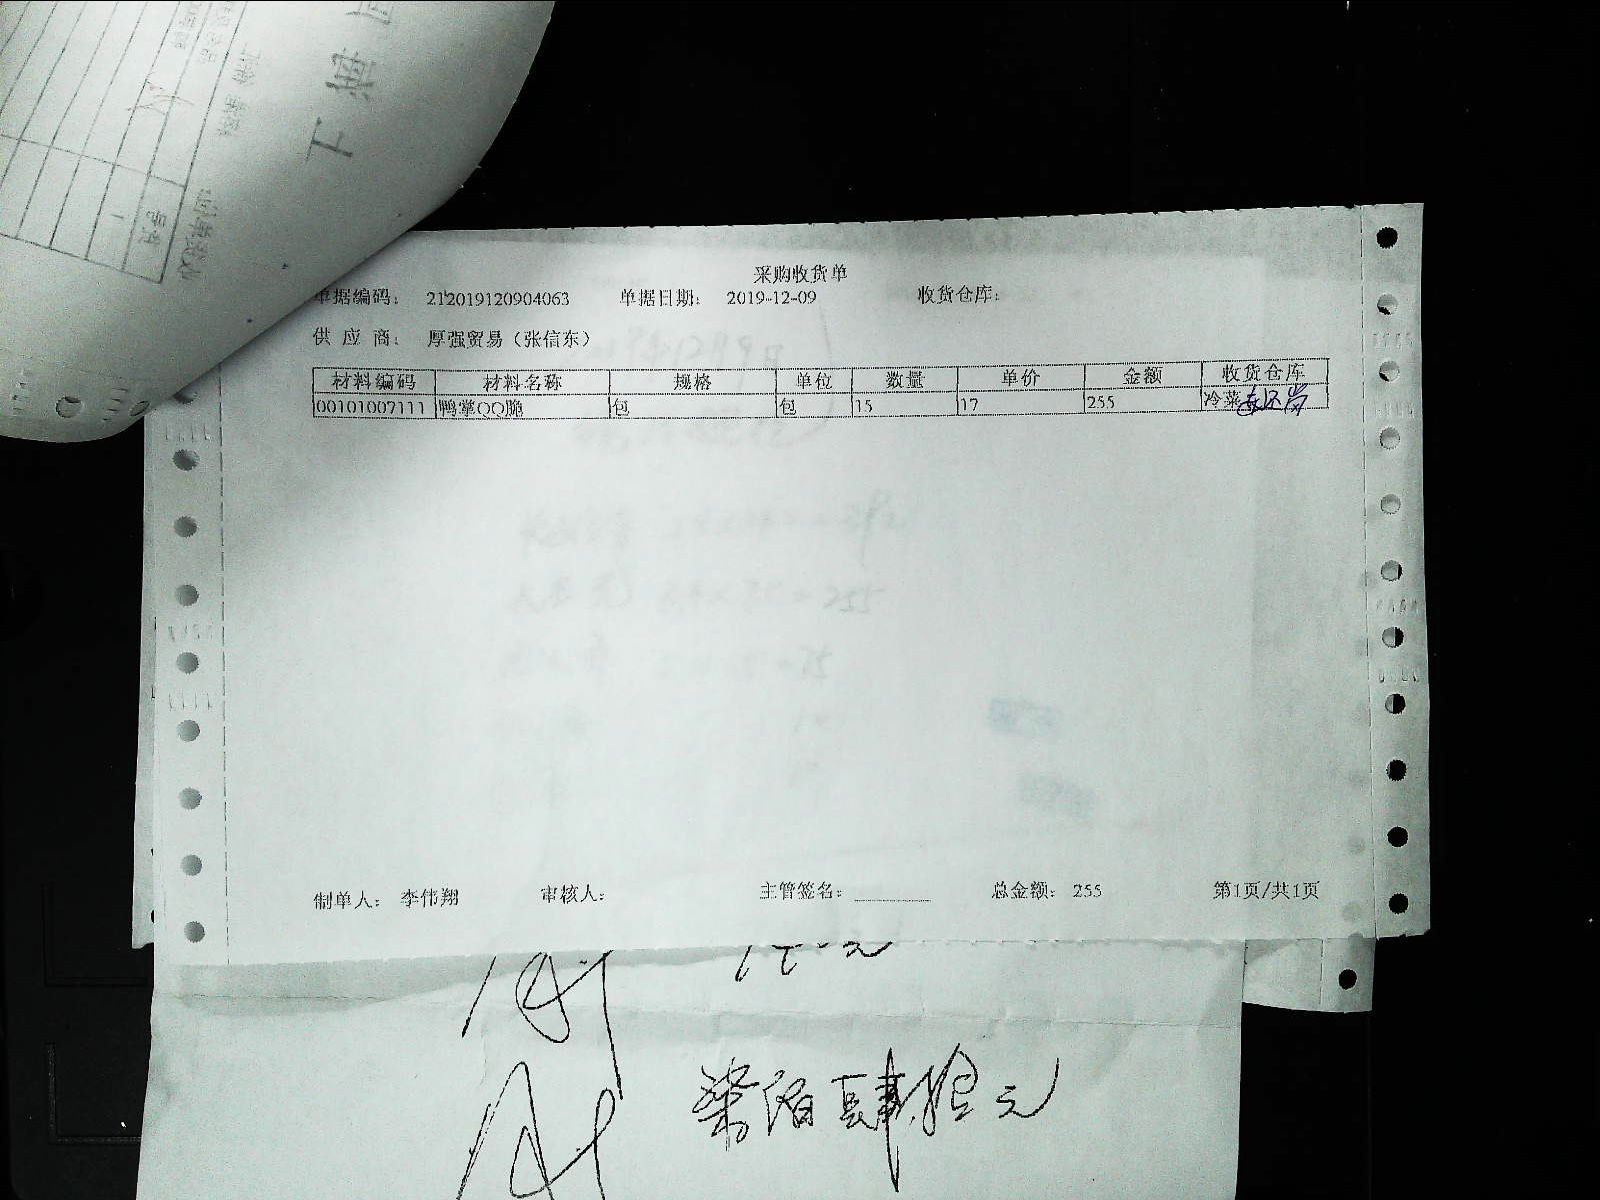 上海
采购收货单
单据编码： 212019120904063 单据日期： 2019-12-09 收货仓库：
供 应 商： 厚强贸易（张信东）
材料编码 材料名称 规格 单位 数量 单价 金额 收货仓库
00101007111 鸭掌QQ脆 包 包 15 17 255 冷菜
制单人： 李伟翔 审核人： 主管签名： 总金额： 255 第1页/共1页
柒佰肆拾元